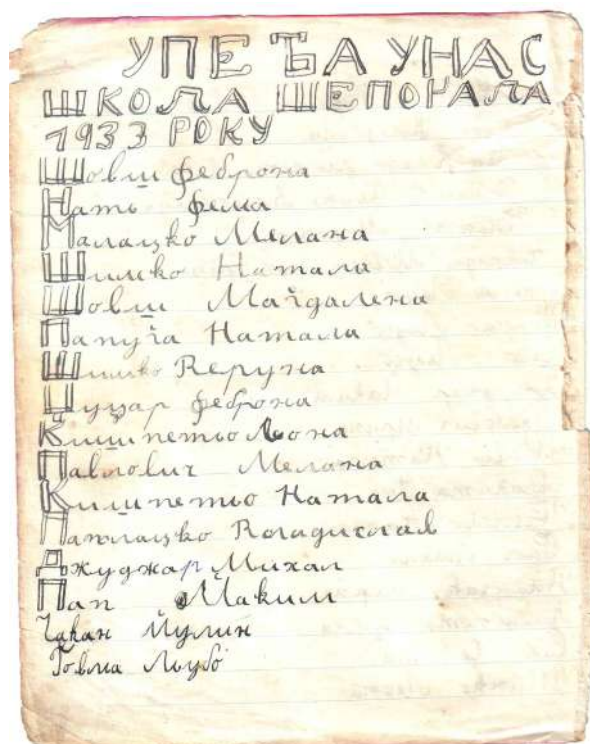 УПЕЂА УНАС
ШКОЛА ШЕПОЧАЛА
1933 РОКУ
Шовш Феброна
Нать Фема
Малацко Мелана
Шимко Натала
Шовш Маґдалена
Папуґа Натала
Шимко Веруна
Цуцар Феброна
Кишпетьо Льона
Павлович Мелана
Кишпетьо Натала
Владислав
Джуджар Михал
Пап Маким
Чакан Йулин
Товма Льубо